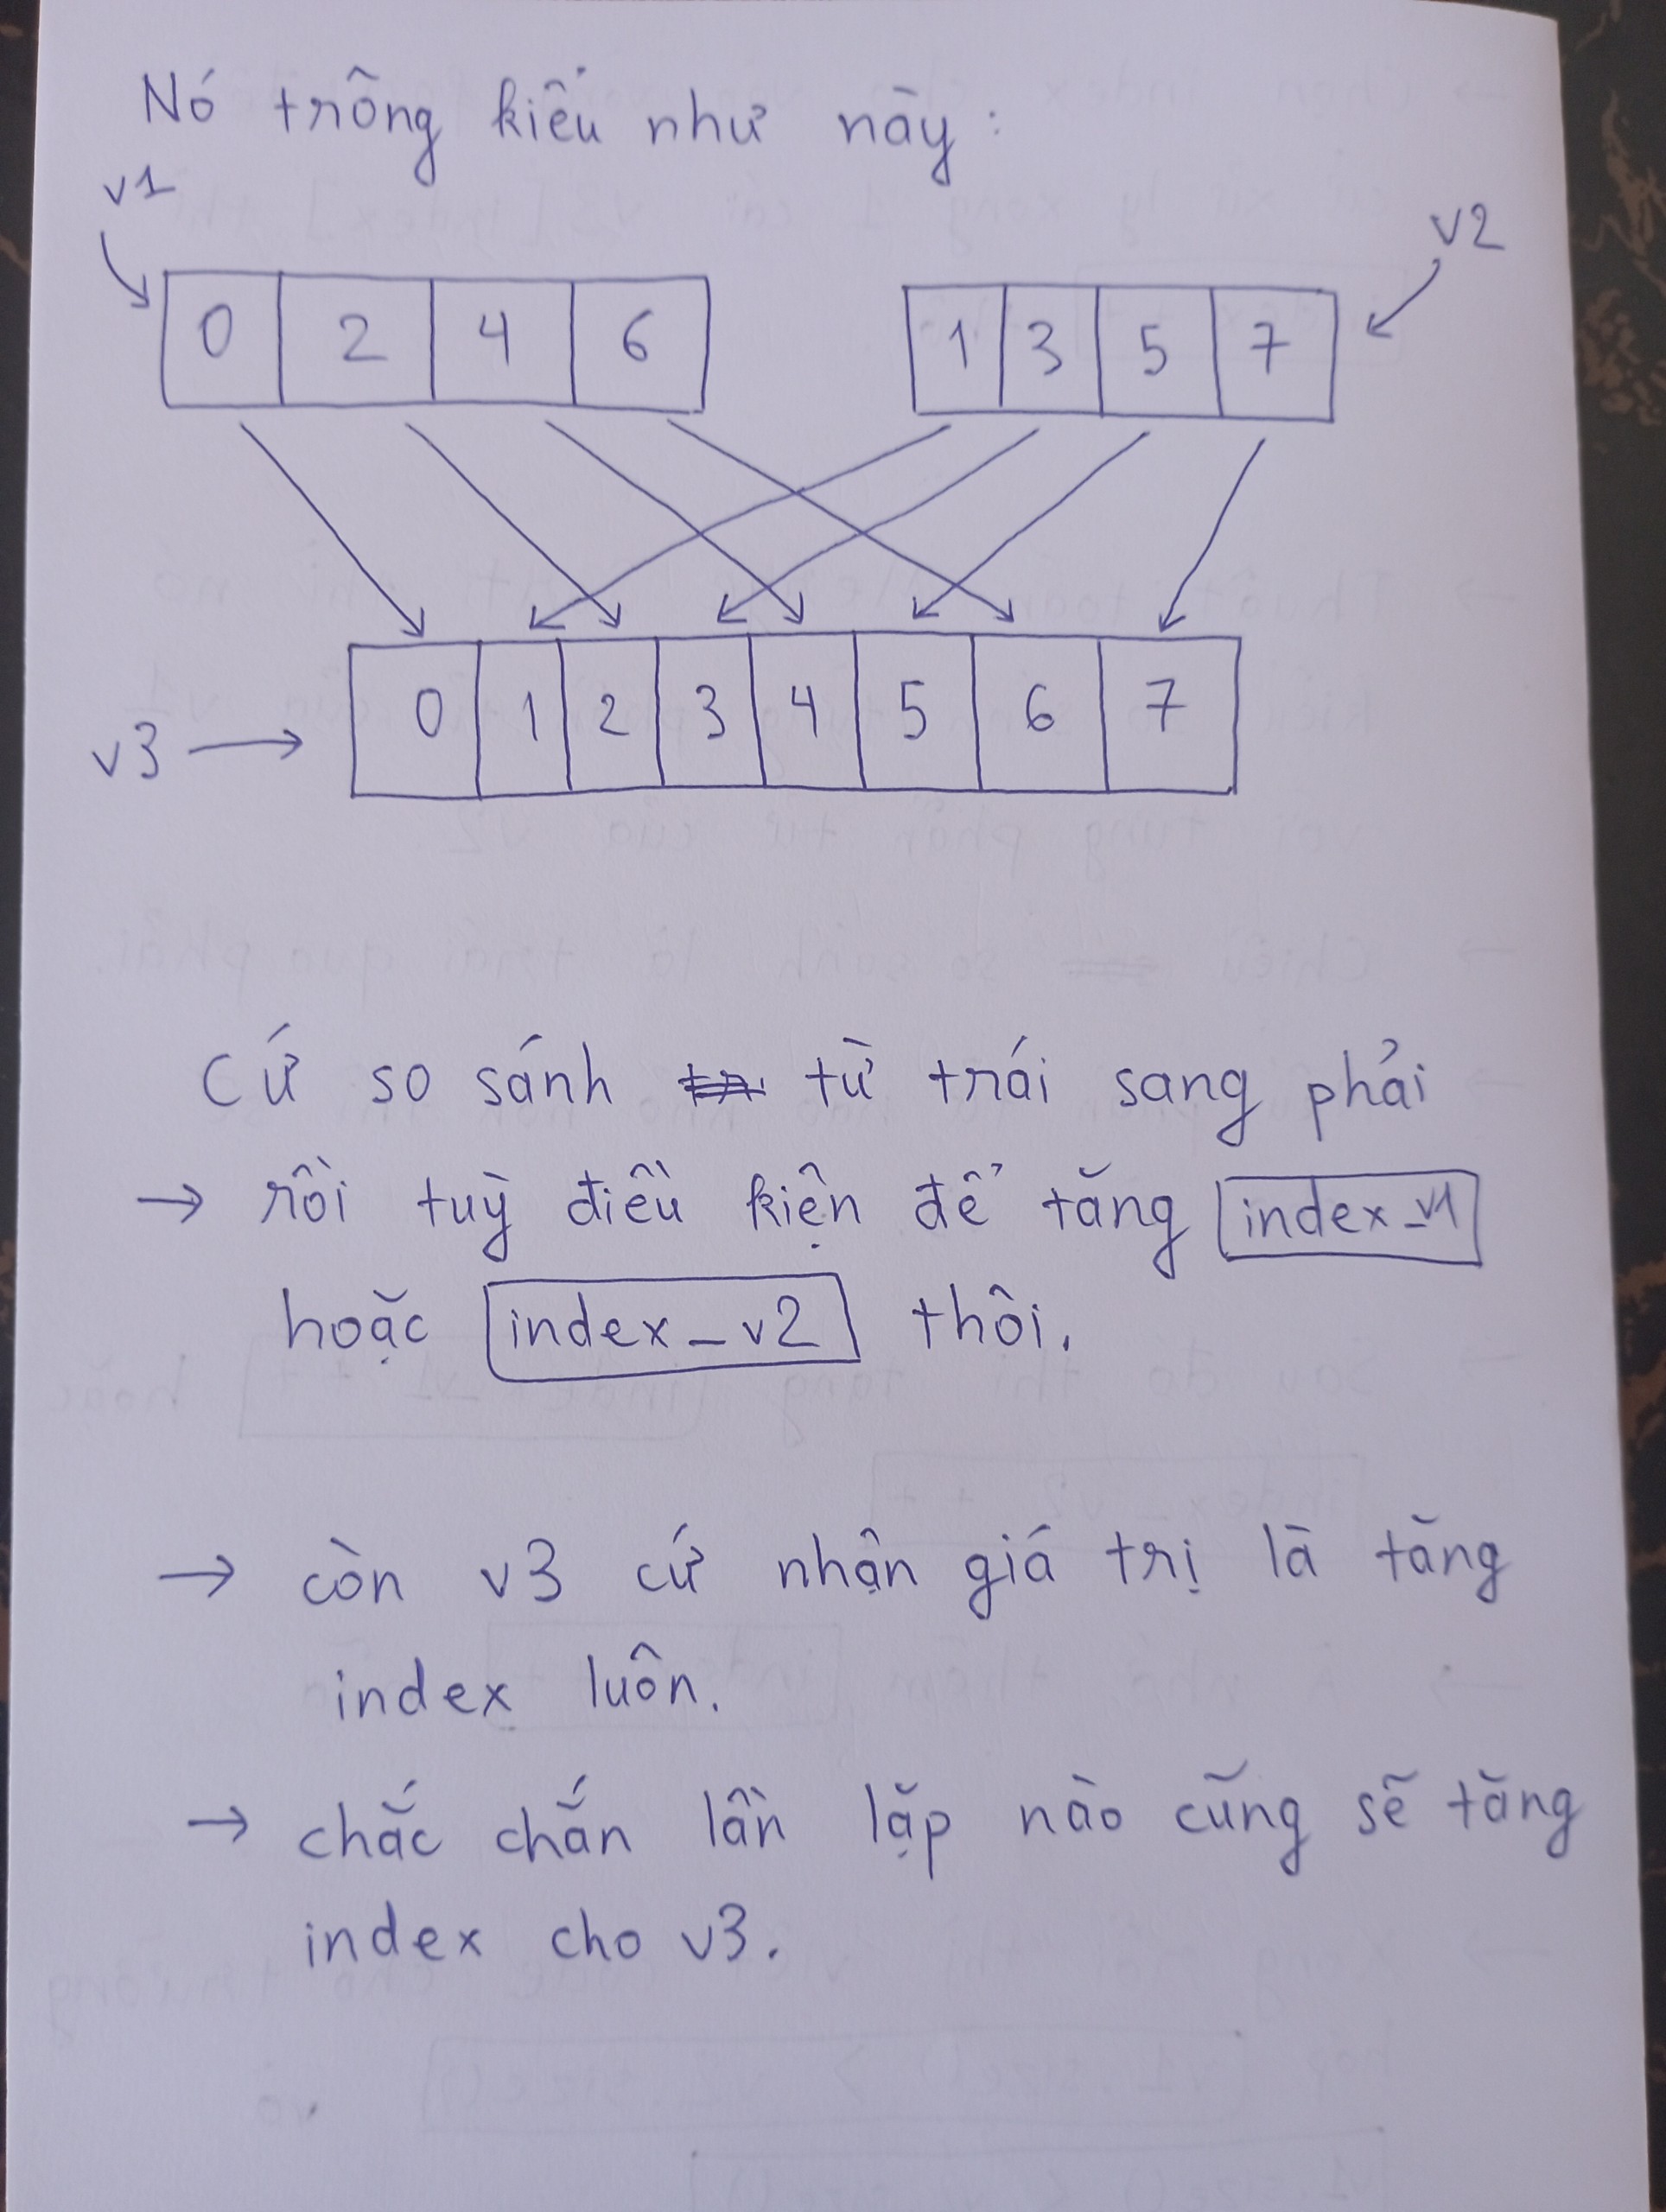 Nó trông kiểu như này:
v1
v2
0 2 4 6
1 3 5 7
0 1 2 3 4 5 6 7
v3 →
Cứ so sánh từ trái sang phải
→ rồi tuỳ điều kiện để tăng index_v1
hoặc index_v2 thôi.
→ còn v3 cứ nhận giá trị là tăng
index luôn.
→ chắc chắn lần lặp nào cũng sẽ tăng
index cho v3.